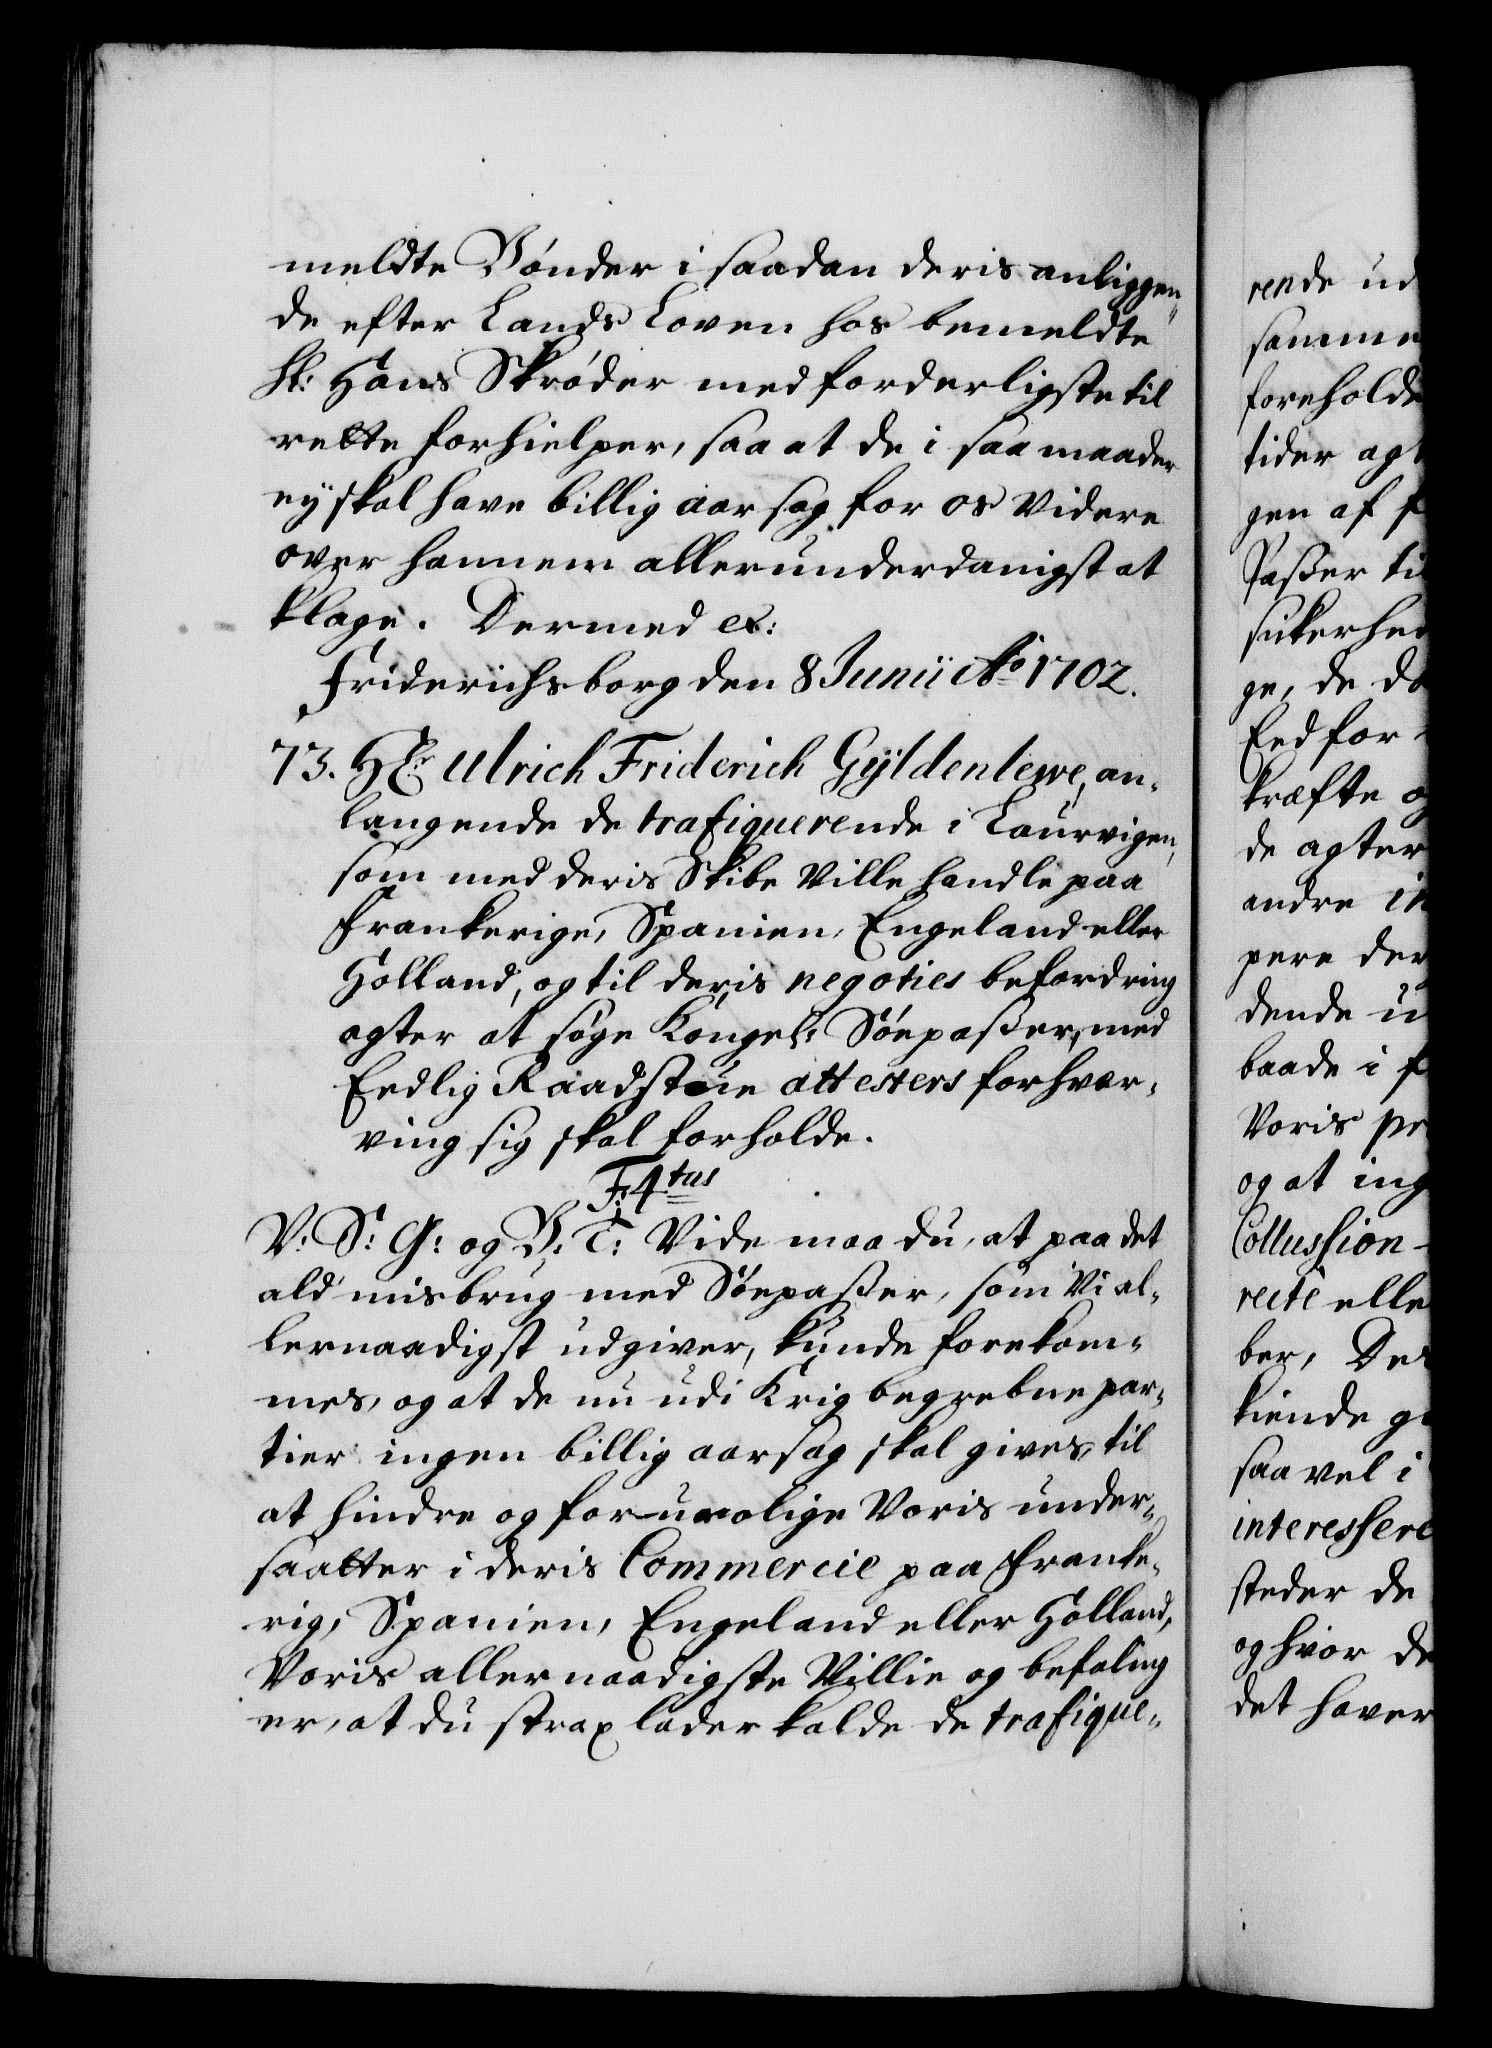 meldte Bönder i saadan deris anliggen-
de efter Lands Loven hos bemeldte
Hr: Hans Skrøder med forderligste til
rette forhielper, saa at de i saa maader
ey skal have billig aarsag for os videre
over hannem allerunderdanigst at
klage. Dermed ex:
Friderichsborg den 8 Junii Ao 1702.
73. Hr. Ulrich Friderich Gyldenlewe, an-
langende de trafiquerende i Laurvigen,
som med deris Skibe Ville handle paa
Frankerige, Spanien, Engeland eller
Holland, og til deris negoties befordring
agter at søge Kongel: Söepasser, med
Eedlig Raadstúe attesters forhver-
ving sig skal forholde.
F: 4.tus
V: S: G: og B: T: Vide maa du, at paa det
ald misbrug med Söepasser, som Vi al-
lernaadigst udgiver, kunde forekom-
mes, og at de nu udi Krig begrebne par-
tier ingen billig aarsag skal gives, til
at hindre og foruroelige Voris under-
saatter i deris Commercie paa Franke-
rig, Spanien, Engeland eller Holland,
Voris allernaadigste Villie og befaling
er, at du strax lader kalde de trafique-
rende ud
samme
foreholde
tider agt
gen af f
Passer ti
sikerhed
ge, de da
Eed for
kræfte o
de agter
andre in
pere der
dende u
baade i f
Voris pr
og at ing
Collussion
recte elle
ber, Des
kiende g
saavel i
interessere
steder de
og hvor de
det haver